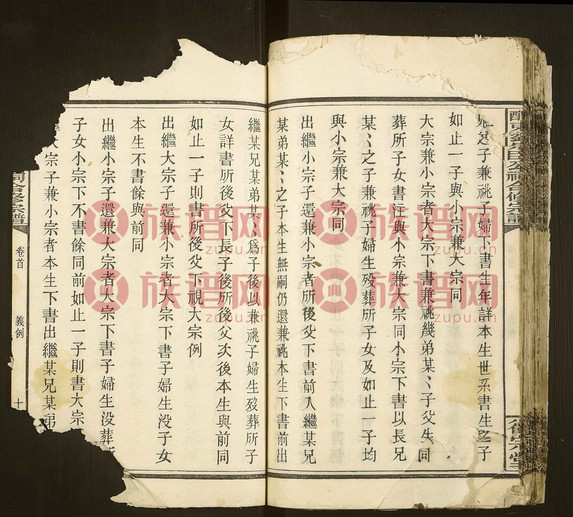 之子兼祧子婦下書生年詳本生世系書生之子
如止一子與小宗兼大宗同
大宗兼小宗者大宗下書兼祧幾弟某〻子父失同
葬所子女書注與小宗兼大宗同小宗下書以長兄
某〻之子兼祧子婦生殁葬所子女及如止一子均
與小宗兼大宗同
出繼小宗還兼大宗者所後父下書前人繼某兄
某弟某〻之子本生無嗣仍還兼祧本生下書前出
繼某兄某弟某〻爲子後以兼祧子婦生殁葬所子
女詳書所後父下長子後所後父次後本生與前同
如止一子則書所後父下視大宗例
出繼大宗子還兼小宗者大宗下書子婦生没子女
本生不書餘與前同
出繼小宗子還兼大宗者大宗下書子婦生没葬
子女小宗下不書餘同前如止一子則書大宗
宗子兼小宗者本生下書出繼某兄某弟
卷首
義例
十
族谱网
zupu.cn
族谱网
zupu.cn
族谱网
zupu.cn
族谱网
zupu.cn
族谱网
zupu.cn
族谱网
zupu.cn